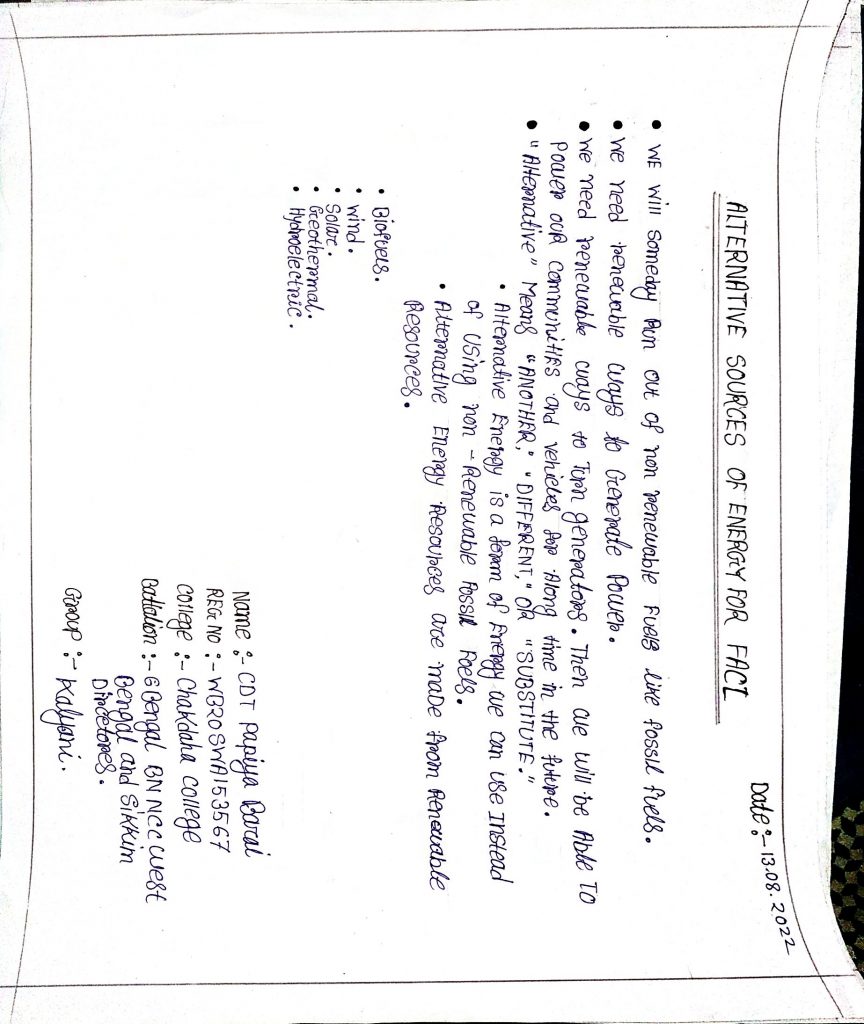 Date :- 13.08.2022
ALTERNATIVE SOURCES OF ENERGY FOR FACT
• WE will someday Run out of non renewable Fuels like fossil fuels.
• We need renewable ways to Generate Power.
• We need renewable ways to Turn generators. Then we will be Able TO
Power our Communities and vehicles for Along time in the future.
• "Alternative" Means "ANOTHER," "DIFFERENT," OR "SUBSTITUTE."
• Alternative Energy is a form of Energy we can use Instead
of Using non - Renewable Fossil Foels.
• Alternative Energy Resources are made from Renewable
Resources.
• Biofuels.
• Wind.
• Solar.
• Geothermal.
• Hydroelectric.
Name :- CDT Papiya Barai
REG NO :- WB20SWA153567
College :- Chakdaha College
Battalion :- 6 Bengal BN NCC West
Bengal and Sikkim
Dircetores.
Group :- Kalyani.